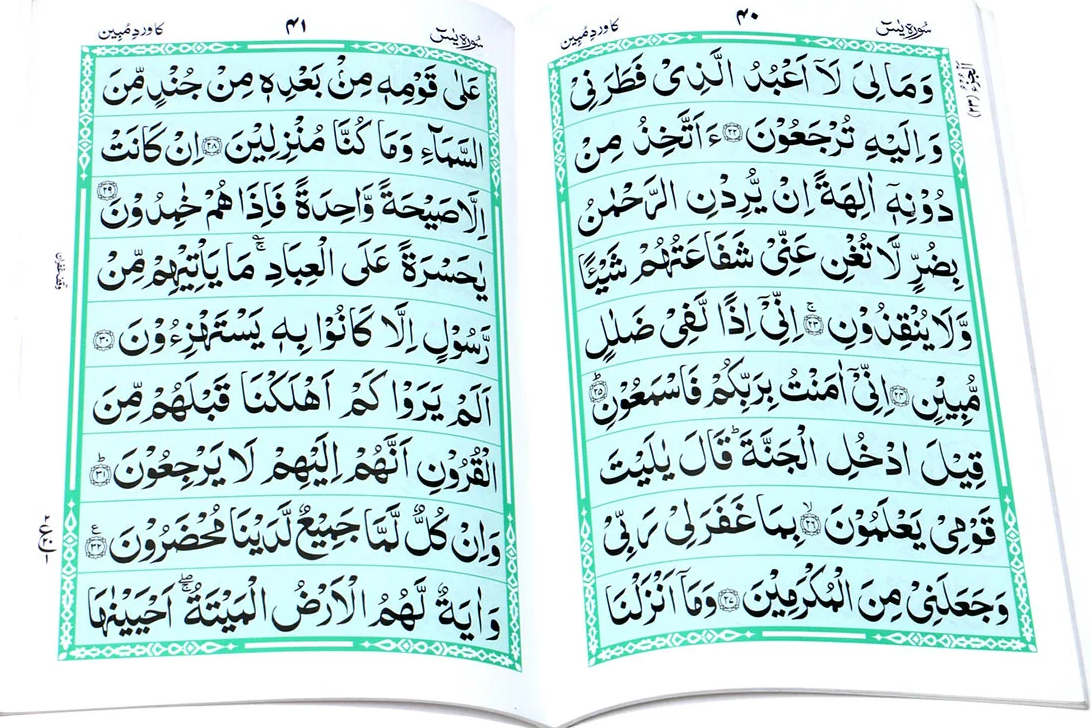 سُورَۃ یٰسٓ
۴۰
کا وردِ مُبین
وَمَا لِيَ لَاۤ اَعْبُدُ الَّذِىْ فَطَرَنِىْ
وَاِلَيْهِ تُرْجَعُوْنَ ﴿۲۲﴾ ءَاَتَّخِذُ مِنْ
دُوْنِهٖۤ اٰلِهَةً اِنْ يُّرِدْنِ الرَّحْمٰنُ
بِضُرٍّ لَّا تُغْنِ عَنِّىْ شَفَاعَتُهُمْ شَيْـًٔا
وَّلَا يُنْقِذُوْنِ ﴿۲۳﴾ۚ اِنِّىْۤ اِذًا لَّفِىْ ضَلٰلٍ
مُّبِيْنٍ ﴿۲۴﴾ اِنِّىْۤ اٰمَنْتُ بِرَبِّكُمْ فَاسْمَعُوْنِ ﴿۲۵﴾ؕ
قِيْلَ ادْخُلِ الْجَنَّةَ ؕ قَالَ يٰلَيْتَ
قَوْمِىْ يَعْلَمُوْنَ ﴿۲۶﴾ۙ بِمَا غَفَرَ لِىْ رَبِّىْ
وَجَعَلَنِىْ مِنَ الْمُكْرَمِيْنَ ﴿۲۷﴾ وَمَاۤ اَنْزَلْنَا
سُورَۃ یٰسٓ
۴۱
کا وردِ مُبین
عَلٰى قَوْمِهٖ مِنْۢ بَعْدِهٖ مِنْ جُنْدٍ مِّنَ
السَّمَآءِ وَمَا كُنَّا مُنْزِلِيْنَ ﴿۲۸﴾ اِنْ كَانَتْ
اِلَّا صَيْحَةً وَّاحِدَةً فَاِذَا هُمْ خٰمِدُوْنَ ﴿۲۹﴾
يٰحَسْرَةً عَلَى الْعِبَادِ ۚ مَا يَاْتِيْهِمْ مِّنْ
رَّسُوْلٍ اِلَّا كَانُوْا بِهٖ يَسْتَهْزِءُوْنَ ﴿۳۰﴾
اَلَمْ يَرَوْا كَمْ اَهْلَكْنَا قَبْلَهُمْ مِّنَ
الْقُرُوْنِ اَنَّهُمْ اِلَيْهِمْ لَا يَرْجِعُوْنَ ﴿۳۱﴾ؕ
وَاِنْ كُلٌّ لَّمَّا جَمِيْعٌ لَّدَيْنَا مُحْضَرُوْنَ ﴿۳۲﴾
وَاٰيَةٌ لَّهُمُ الْاَرْضُ الْمَيْتَةُ ۚۖ اَحْيَيْنٰهَا